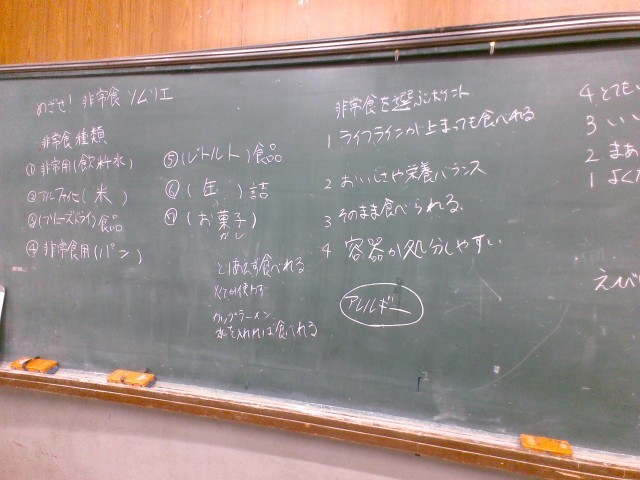 めざせ! 非常食 ソムリエ
非常食種類
①非常用(飲料水)
②アルファ化(米)
③(フリーズドライ)食品
④非常食用(パン)
⑤(レトルト)食品
⑥(缶)詰
⑦(お菓子)
がし
とりあえず食べれる
カップラーメン
水を入れれば食べれる
非常食を選ぶポイント
1 ライフラインが止まっても食べれる
2 おいしさや栄養バランス
3 そのまま食べられる
4 容器が処分しやすい
アレルギー
4 とても
3 いい
2 まあ
1 よく
えび